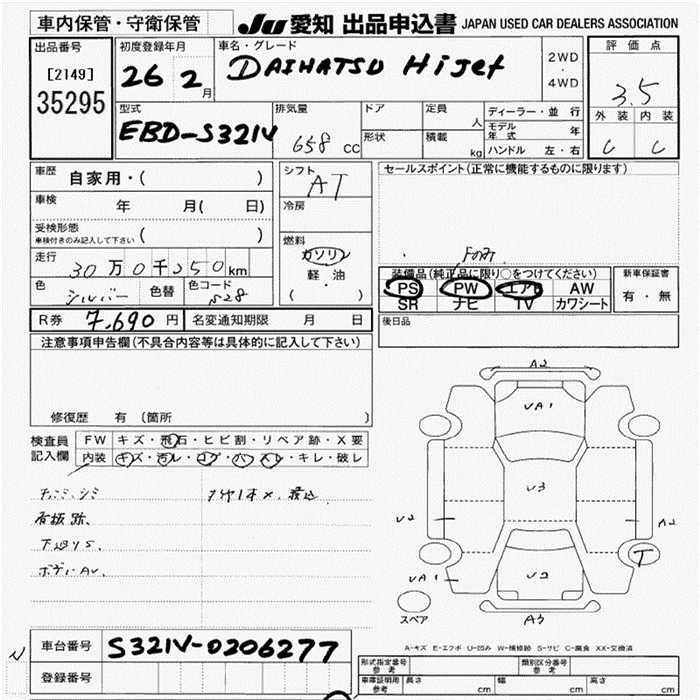 車内保管・守衛保管
JU 愛知 出品申込書 JAPAN USED CAR DEALERS ASSOCIATION
出品番号
[2149]
35295
初度登録年月
26 2 月
車名・グレード
DAIHATSU Hijet
2WD
・
4WD
評価点
3.5
外装 内装
C C
型式
EBD-S321V
排気量
658 cc
ドア
形状
定員 人
積載 kg
ディーラー・並 行
モデル年式 年
ハンドル 左・右
車歴 自家用・( )
車検 年 月( 日)
受検形態
車検付きのみ記入して下さい ( )
走行 30万0千250km
色 シルバー 色替 色コード S28
シフト AT
冷房
燃料
ガソリン
軽・油
( )
セールスポイント(正常に機能するものに限ります)
装備品(純正品に限り○をつけてください)
PS PW エアB AW
SR ナビ TV カワシート
新車保証書
有・無
R券 7,690 円 名変通知期限 月 日
後日品
注意事項申告欄(不具合内容等は具体的に記入して下さい)
修復歴 有 (箇所 )
検査員記入欄
FW キズ・飛石・ヒビ割・リペア跡・X要
内装 キズ・汚レ・コゲ・穴・スレ・キレ・破レ
看板跡、
下廻りS、
ボディAU、
A2
UA1
U3
U2
A2
UA1
U2
T
A3
スペア
A-キズ E-エクボ U-凹み W-補修跡 S-サビ C-腐食 XX-交換済
車台番号 S321V-0206277
登録番号
型式指定番号 参考
類別区分番号 参考
車庫証明用 参考 長さ cm 幅 cm 高さ cm